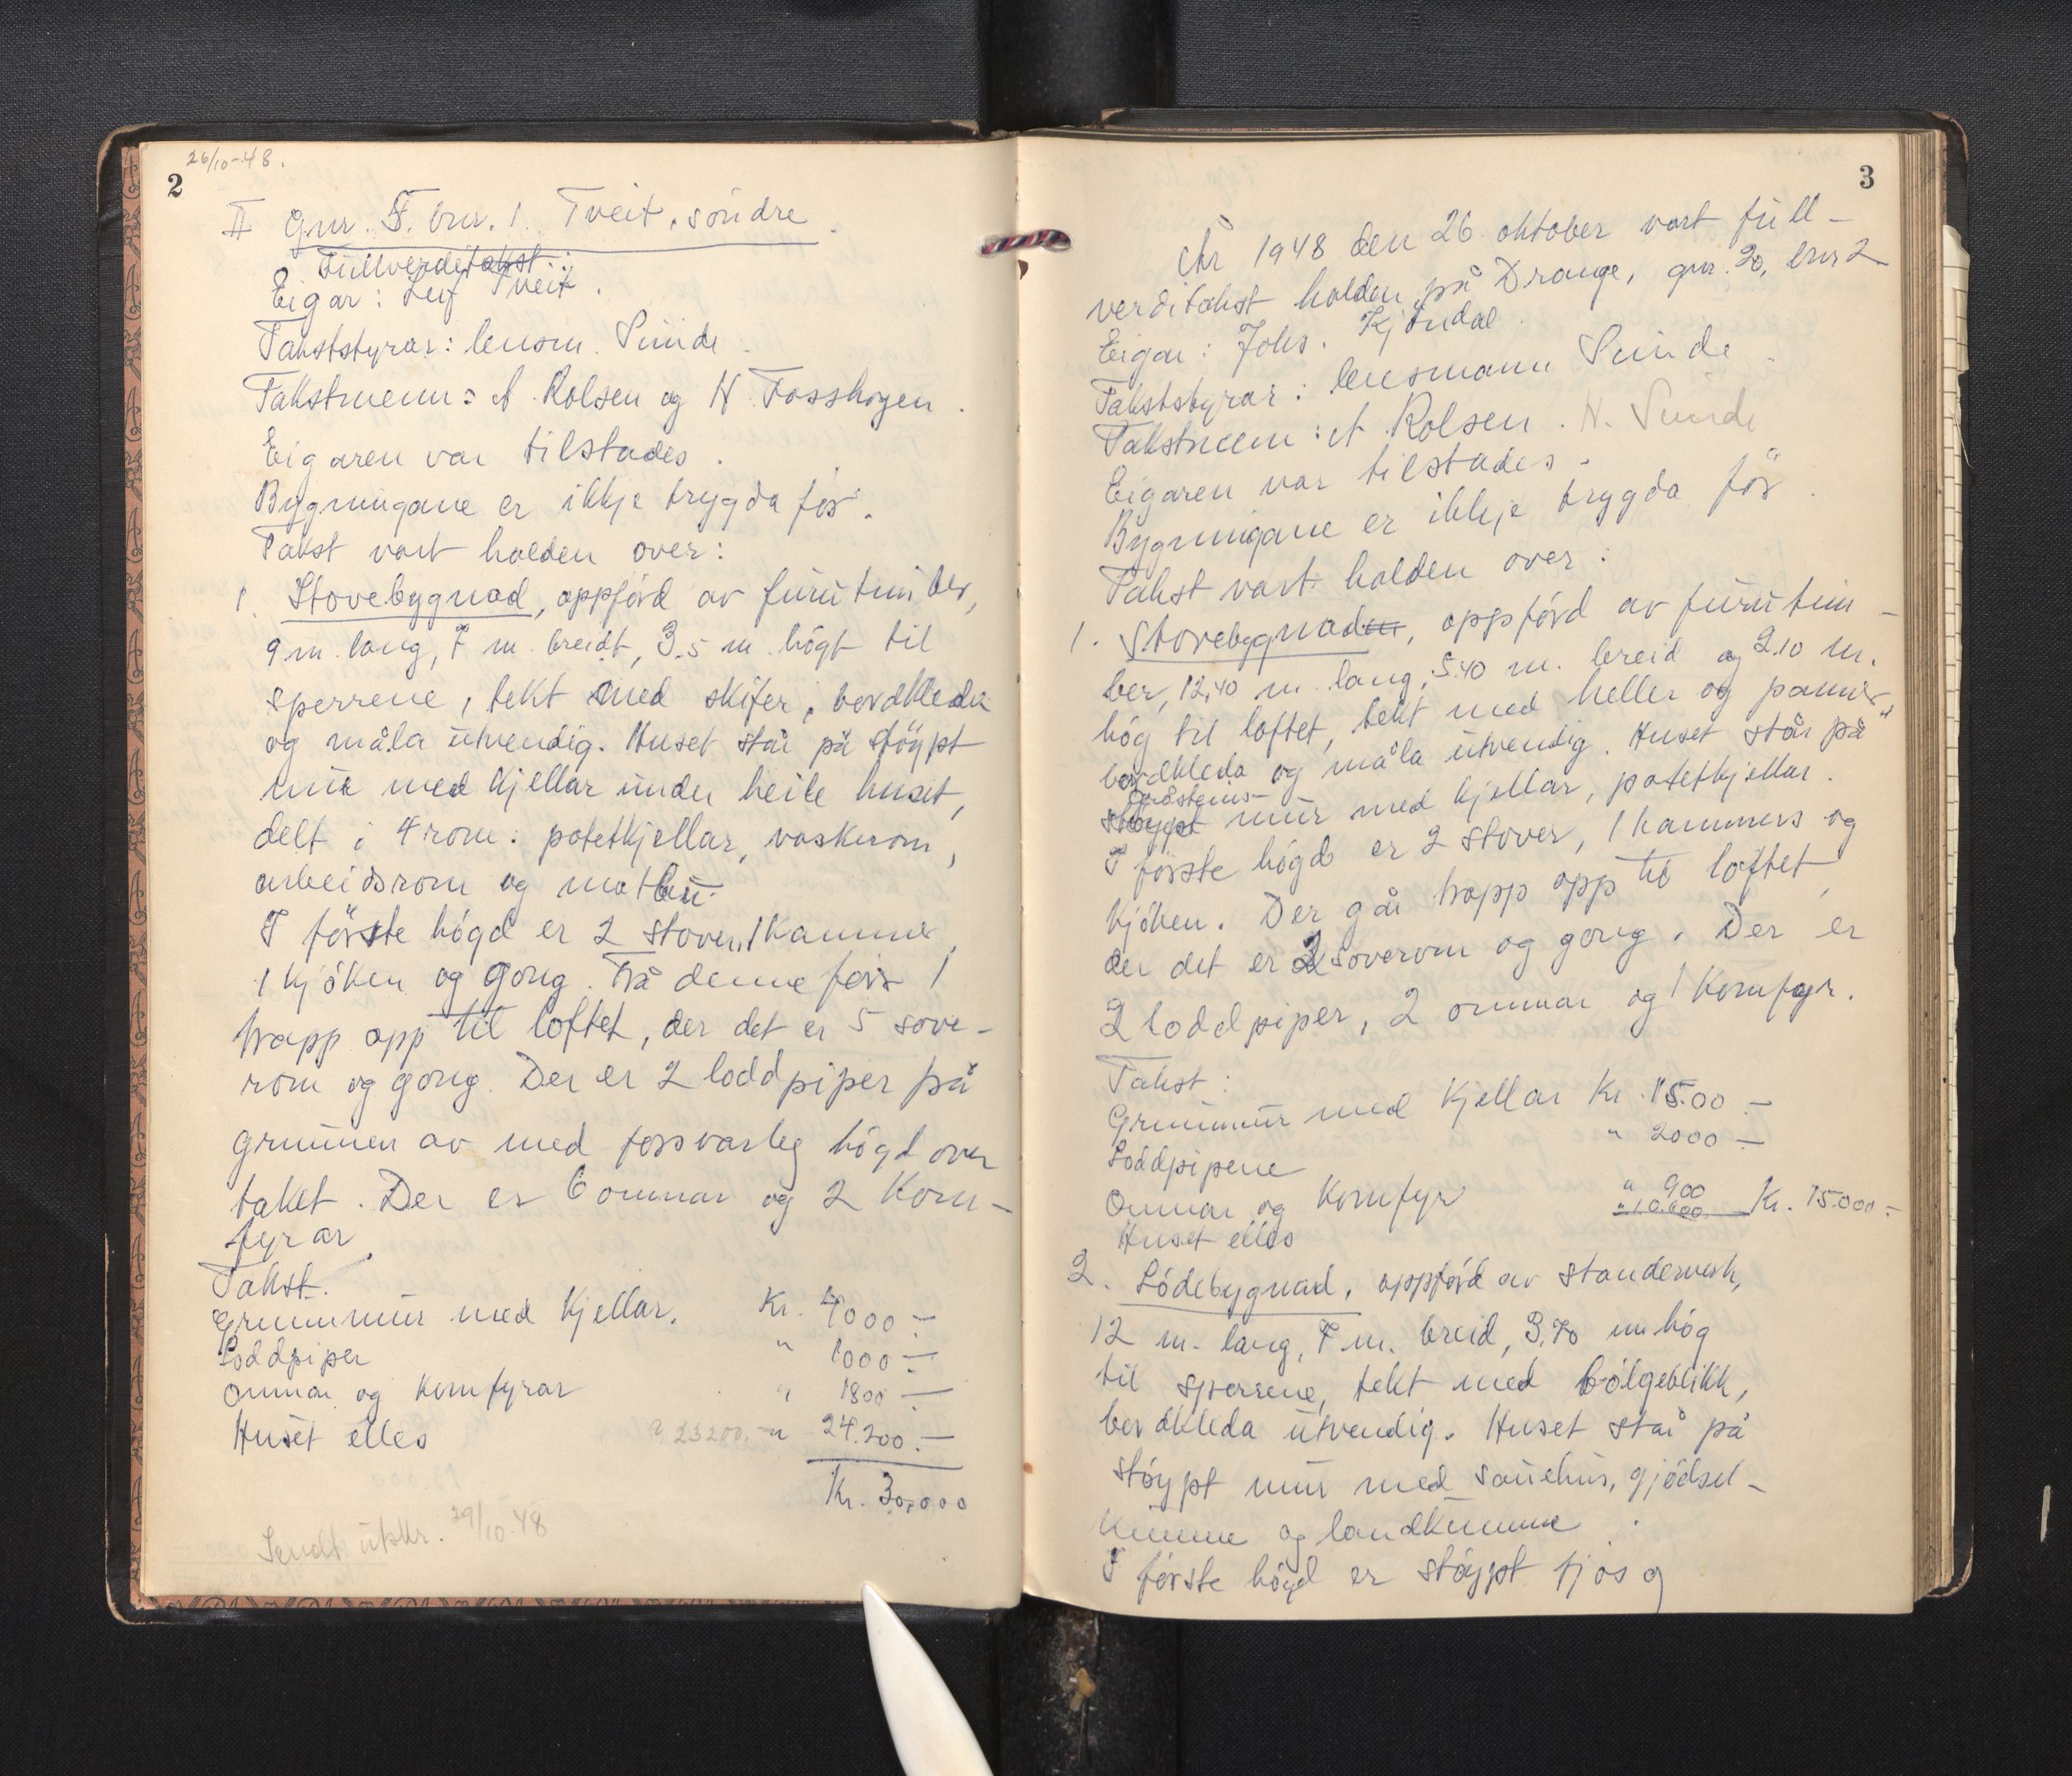 26/10-48.
2
II Gnr. 5. bnr. 1. Tveit, söndre.
Fullverditakst:
Eigar: Leif Tveit.
Takststyrar: lensm. Sunde.
Takstmenn: A. Rolsen og H. Fosshagen.
Eigaren var tilstades.
Bygningane er ikkje trygda för.
Takst vart halden over:
1. Stovebygnad, oppförd av furutimber,
9 m. lang, 7 m. breidt, 3.5 m. högt til
sperrene, tekt med skifer, bordkleda
og måla utvendig. Huset står på stöypt
mur med kjellar under heile huset,
delt i 4 rom: potetkjellar, vaskerom,
arbeidsrom og matbu.
I förste högd er 2 stover, 1 kammer,
1 kjöken og gong. Frå denne förer 1
trapp opp til loftet, der det er 5 sove-
rom og gong. Der er 2 loddpiper på
grunnen av med forsvarleg högd over
taket. Der er 6 omnar og 2 kom-
fyrar.
Takst.
Grunnmur med kjellar. Kr. 4000.-
Loddpiper " 1000.-
Omnar og komfyrar " 1800.-
Huset elles 23200.- " 24.200.-
Kr. 30.000
Sendt utskr. 29/10.48
3
År 1948 den 26 oktober vart full-
verditakst halden på Drange, gnr. 20, bnr 2
Eigar: Johs. Kjöndal.
Takststyrar: lensmann Sunde.
Takstmenn: A. Rolsen. H. Sunde
Eigaren var tilstades.
Bygningane er ikkje trygda för.
Takst vart halden over:
1. Stovebygnaden, oppförd av furutim-
ber, 12,40 m. lang, 5.40 m. breid og 2.10 m.
hög til loftet, tekt med heller og panner,
bordkleda og måla utvendig. Huset står på
gråsteins-
stöypt mur med kjellar, potetkjellar.
I förste högd er 2 stover, 1 kammers og
kjöken. Der går trapp opp til loftet,
der det er 2 soverom og gong. Der er
2 loddpiper, 2 omnar og 1 komfyr.
Takst:
Grunnmur med kjellar Kr. 1500.-
Loddpipene " 2000.-
Omnar og komfyr " 900
Huset elles " 10.600 Kr. 15.000.-
2. Lödebygnad, oppförd av standerverk,
12 m. lang, 7 m. breid, 3.70 m hög
til sperrene, tekt med bölgeblikk,
bordkleda utvendig. Huset står på
stöypt mur med sauehus, gjödsel-
kumme og landkumme.
I förste högd er stöypt fjös og